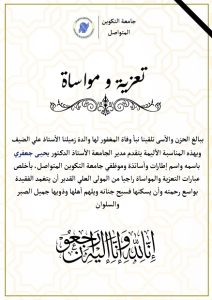 جامعة التكوين
المتواصل
تعزية و مواساة
ببالغ الحزن والأسى تلقينا نبأ وفاة المغفور لها والدة زميلنا الأستاذ علي الضيف
وبهذه المناسبة الأليمة يتقدم مدير الجامعة الأستاذ الدكتور يحيى جعفري
باسمه واسم إطارات وأساتذة وموظفي جامعة التكوين المتواصل، بأخلص
عبارات التعزية والمواساة راجيا من المولى العلي القدير أن يتغمد الفقيدة
بواسع رحمته وأن يسكنها فسيح جنانه ويلهم أهلها وذويها جميل الصبر
والسلوان
إنا لله وإنا إليه راجعون